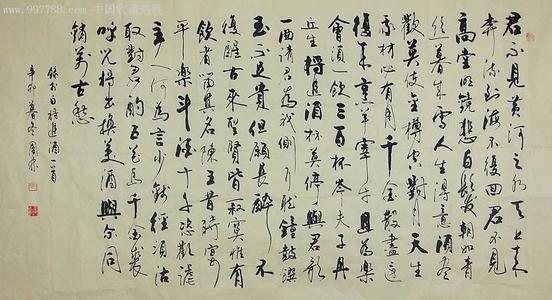 www.997788.com 中国收藏热线
君不見黄河之水天上来
奔流到海不復回君不見
高堂明鏡悲白髮朝如青
丝暮成雪人生得意須尽
歡莫使金樽空對月天生
我材必有用千金散盡還
復来烹羊宰牛且為樂
會須一飲三百杯岑夫子丹
丘生将進酒杯莫停與君歌
一曲請君為我側耳聽鐘鼓饌
玉不足貴但願長醉不
復醒古来聖賢皆寂寞惟有
飲者留其名陳王昔時宴
平樂斗酒十千恣歡謔
主人何為言少錢徑須沽
取對君酌五花馬千金裘
呼兒将出換美酒與爾同
銷萬古愁
録李白将進酒一首
辛卯暮冬